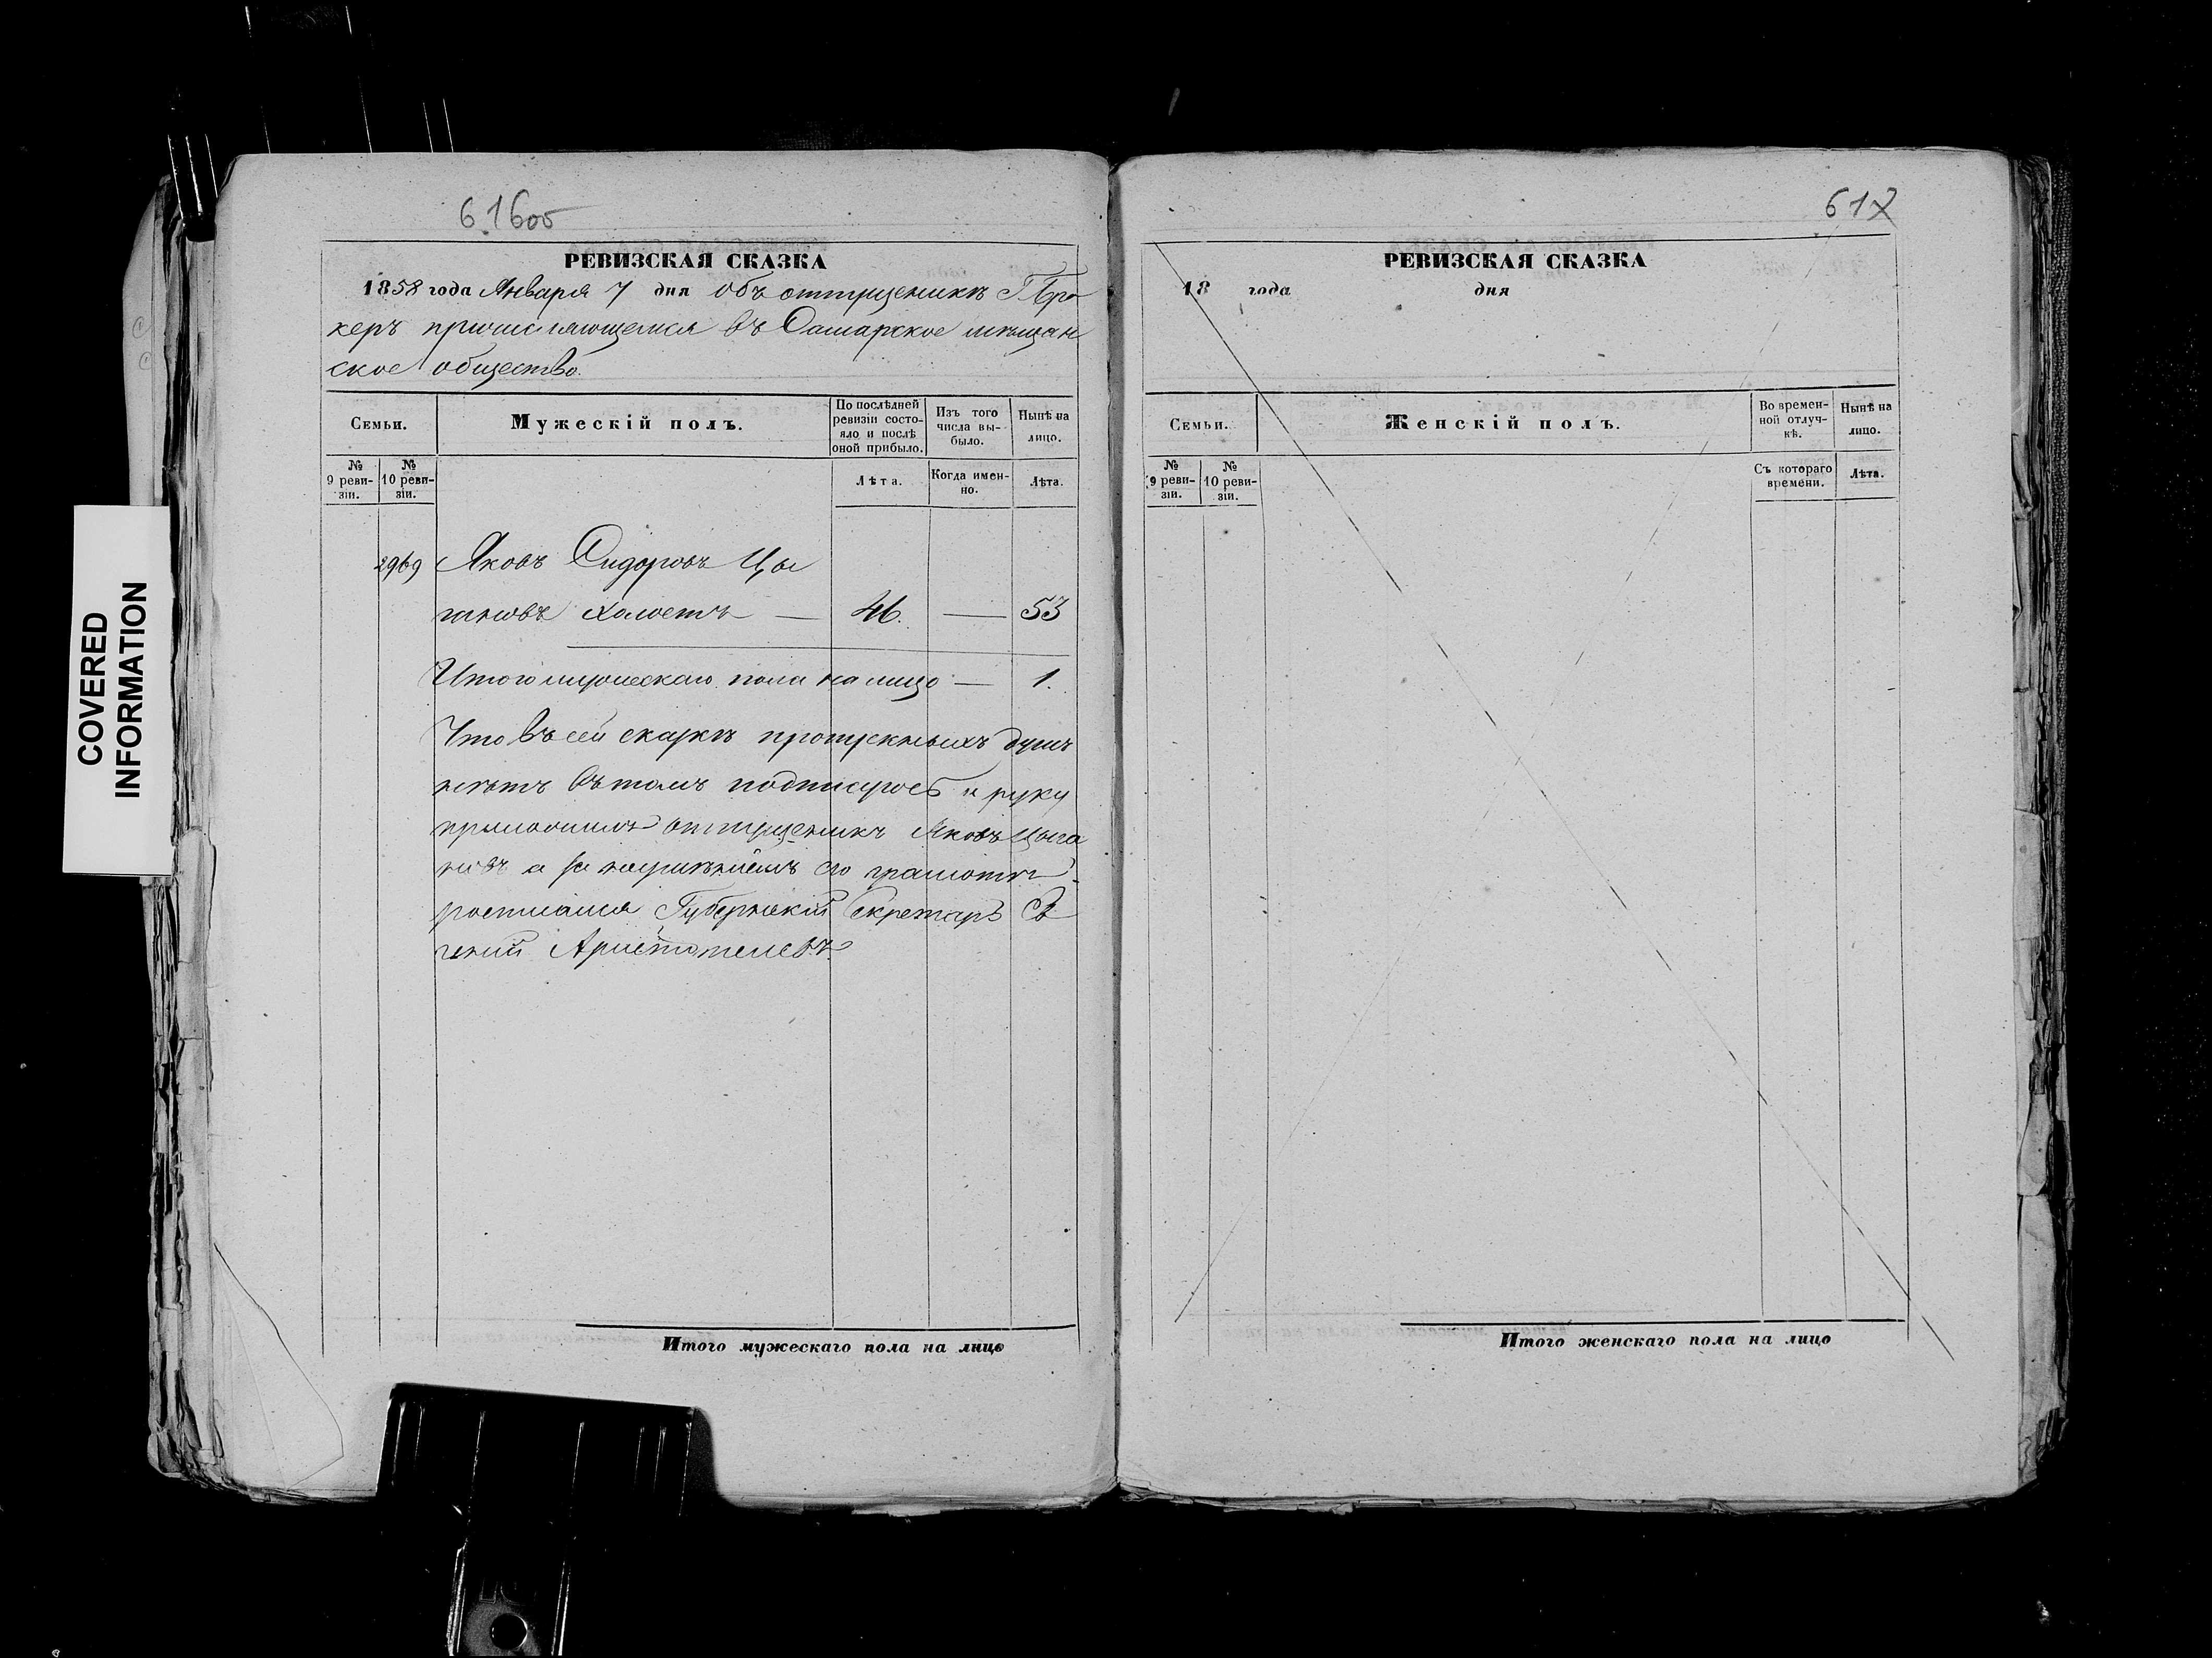 616об
РЕВИЗСКАЯ СКАЗКА
1858 года Января 7 дня Объ отпущеникѣ Г. Бро
керъ причисляющемся въ Самарское мѣщан
ское общество.
Семьи.
Мужескій полъ.
По послѣдней ревизіи состояло и послѣ оной прибыло.
Изъ того числа выбыло.
Нынѣ на лицо.
№ 9 ревизіи.
№ 10 ревизіи.
Лѣта.
Когда именно.
Лѣта.
2969 Яковъ Сидоровъ Цы
гановъ холостъ — 46. — 53
Итого мужескаго пола на лицо — 1.
Что въ сей сказкѣ пропускныхъ душъ
нѣтъ въ томъ подписуюсь и руку
приложилъ отпущеникъ Яковъ Цыга
новъ а за неумѣніемъ его грамотѣ
росписался Губернскій Секретарь Ев
геній Аристотелевъ
617
РЕВИЗСКАЯ СКАЗКА
18 года дня
Семьи.
Женскій полъ.
Во временной отлучкѣ.
Нынѣ на лицо.
№ 9 ревизіи.
№ 10 ревизіи.
Съ котораго времени.
Лѣта.
Итого мужескаго пола на лицо
Итого женскаго пола на лицо
COVERED
INFORMATION